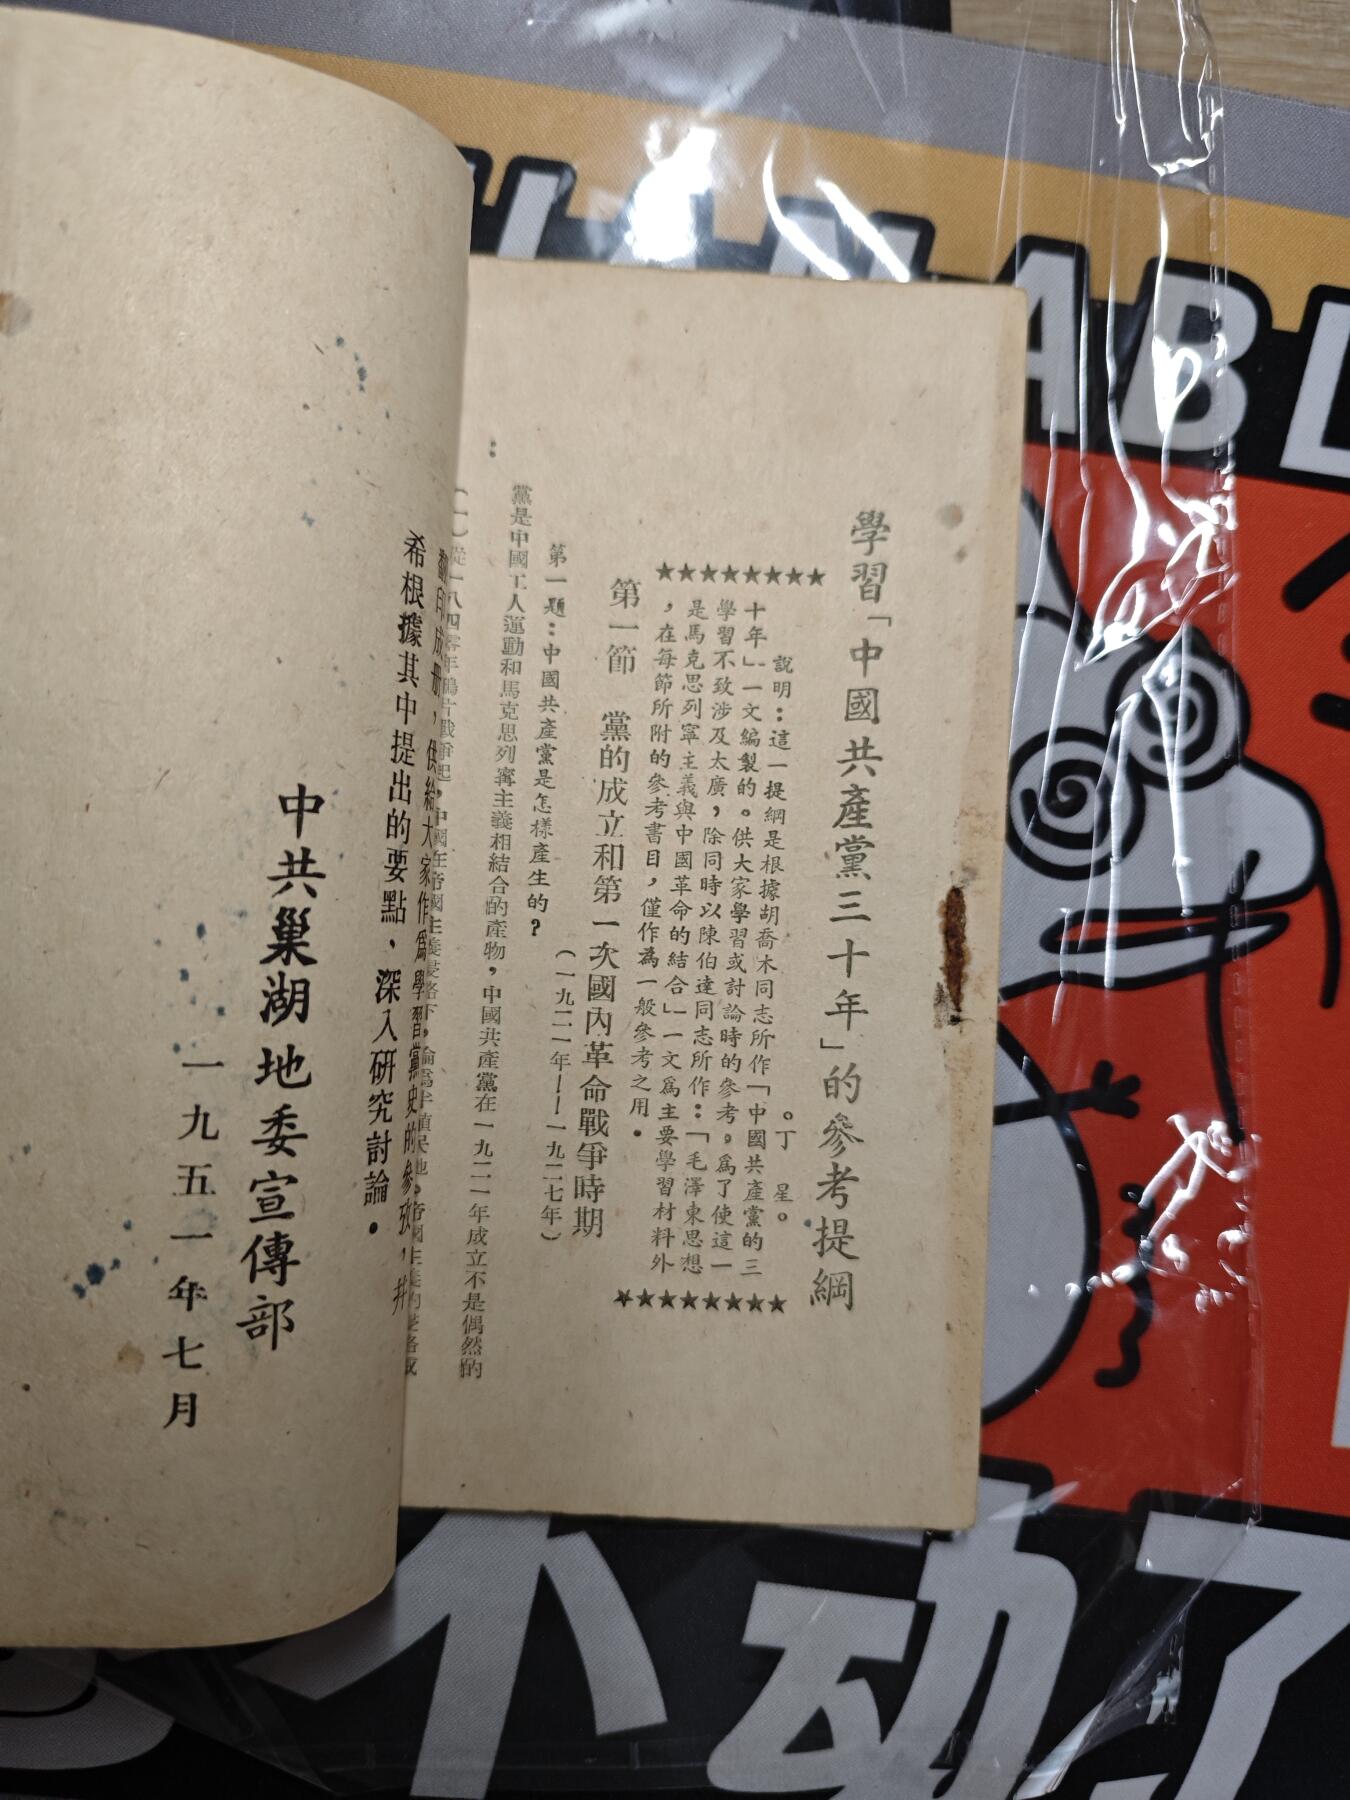 學習「中國共產黨三十年」的參考提綱
。丁　星。
★★★★★★★★
說明：這一提綱是根據胡喬木同志所作「中國共產黨的三
十年」一文編製的。供大家學習或討論時的參考，爲了使這一
學習不致涉及太廣，除同時以陳伯達同志所作：「毛澤東思想
是馬克思列寧主義與中國革命的結合」一文爲主要學習材料外
，在每節所附的參考書目，僅作為一般參考之用．
★★★★★★★★
第一節　黨的成立和第一次國內革命戰爭時期
（一九二一年——一九二七年）
第一題：中國共產黨是怎樣產生的？
黨是中國工人運動和馬克思列寧主義相結合的產物，中國共產黨在一九二一年成立不是偶然的
：
（一）從一八四零年鴉片戰爭起，中國在帝國主義侵略下，淪爲半殖民地。帝國主義的侵略或
翻印成册，供給大家作爲學習黨史的參攷，并
希根據其中提出的要點、深入研究討論．
中共巢湖地委宣傳部
一九五一年七月
ABL
不动了